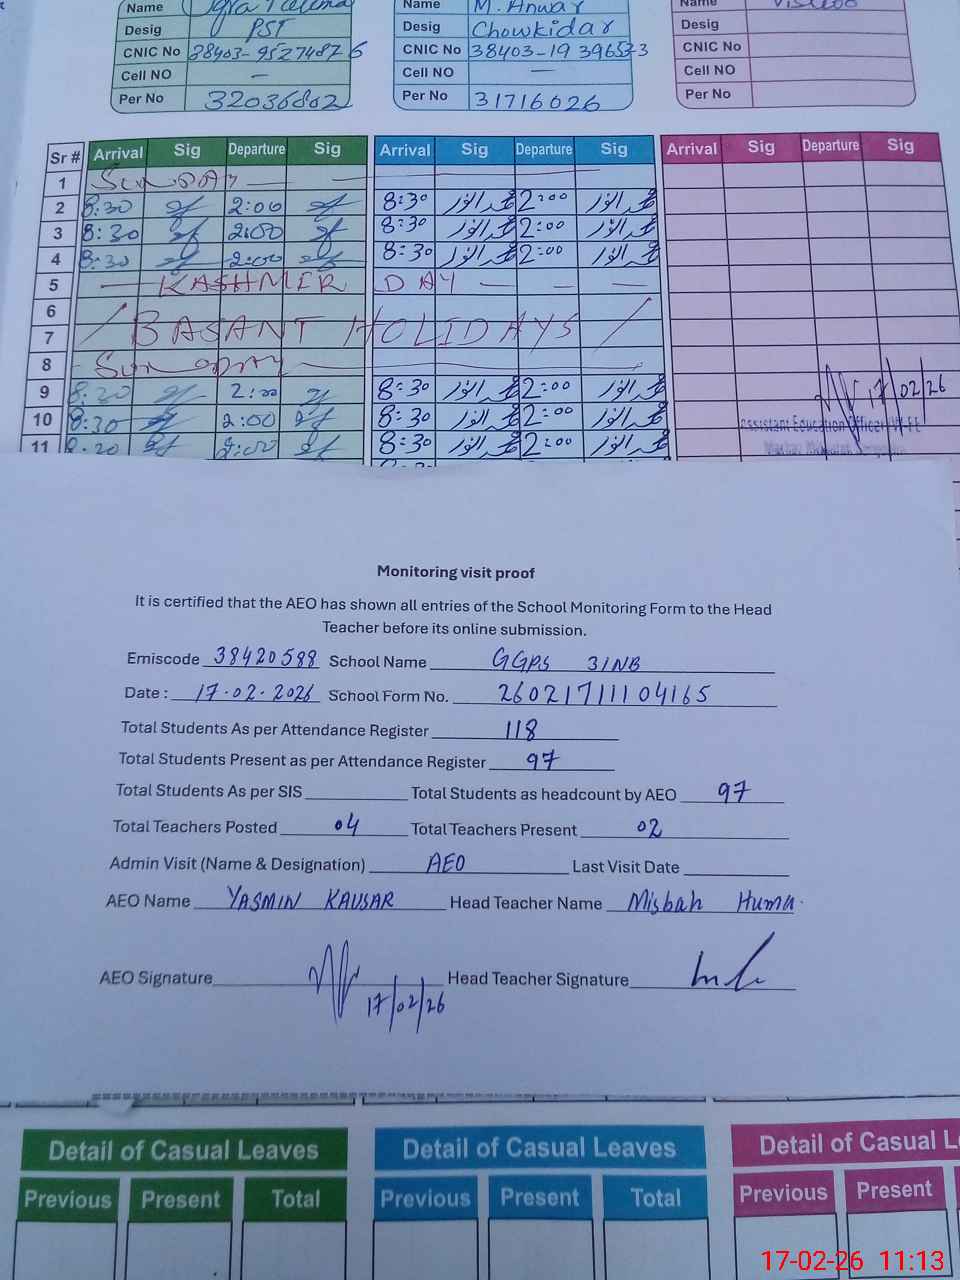 Name Name M. Anwar Name
Desig PST Desig Chowkidar Desig
CNIC No 38403-9527487 6 CNIC No 38403-19 396523 CNIC No
Cell NO — Cell NO — Cell NO
Per No 32036802 Per No 31716026 Per No
Sr # Arrival Sig Departure Sig Arrival Sig Departure Sig Arrival Sig Departure Sig
1 SUNDAY
2 8:30 2:00 8:30 محمد انور 2:00 محمد انور
3 8:30 2:00 8:30 محمد انور 2:00 محمد انور
4 8:30 2:00 8:30 محمد انور 2:00 محمد انور
5 — KASHMIR DAY — — —
6
7 / BASANT HOLIDAYS /
8 SUNDAY
9 8:30 2:00 8:30 محمد انور 2:00 محمد انور
17/02/26
10 8:30 2:00 8:30 محمد انور 2:00 محمد انور
Assistant Education Officer
11 8:30 2:00 8:30 محمد انور 2:00 محمد انور
Monitoring visit proof
It is certified that the AEO has shown all entries of the School Monitoring Form to the Head
Teacher before its online submission.
Emiscode 38420588 School Name GGPS 31NB
Date : 17.02.2026 School Form No. 26021711104165
Total Students As per Attendance Register 118
Total Students Present as per Attendance Register 97
Total Students As per SIS Total Students as headcount by AEO 97
Total Teachers Posted 04 Total Teachers Present 02
Admin Visit (Name & Designation) AEO Last Visit Date
AEO Name YASMIN KAUSAR Head Teacher Name Misbah Huma.
AEO Signature Head Teacher Signature
17/02/26
Detail of Casual Leaves Detail of Casual Leaves Detail of Casual L
Previous Present Total Previous Present Total Previous Present
17-02-26 11:13